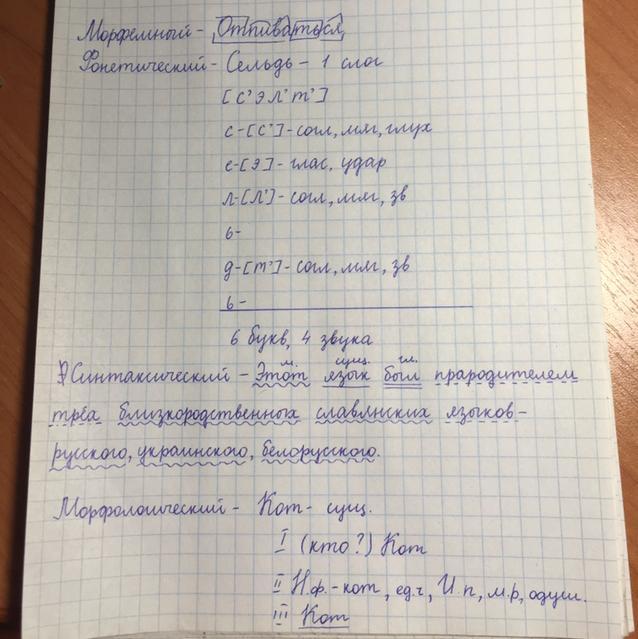 Морфемный - Отпиваться
Фонетический - Сельдь - 1 слог
[с' э л' т']
с-[с']-согл, мяг, глух
е-[э]- глас, удар
л-[л']- согл, мяг, зв
ь-
д-[т']- согл, мяг, зв
ь-
6 букв, 4 звука
м. сущ. гл.
Синтаксический - Этот язык был прародителем
трёх близкородственных славянских языков-
русского, украинского, белорусского.
Морфологический - Кот- сущ.
I (кто?) Кот
II Н.ф.- кот, ед.ч, И.п, м.р, одуш.
III Кот